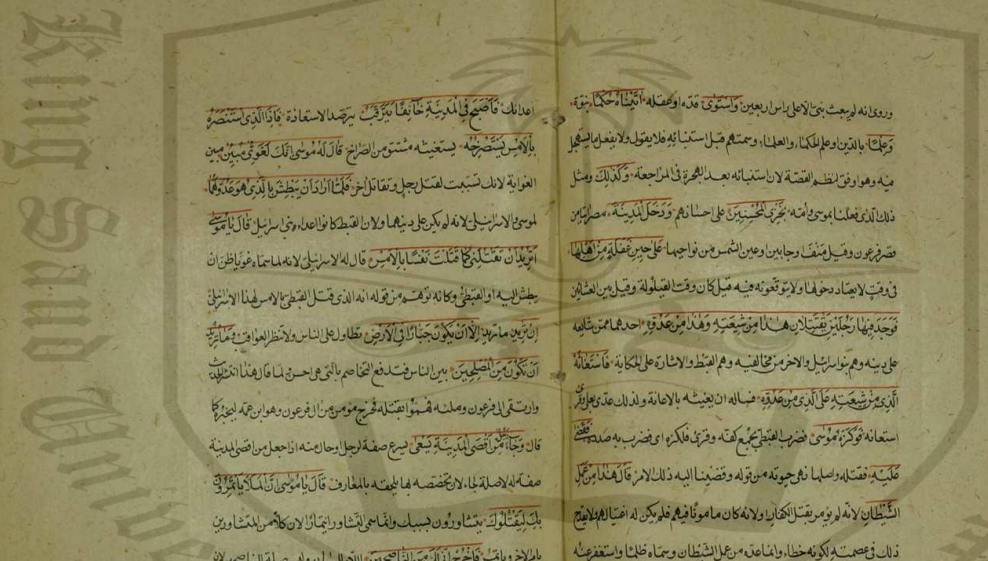 وروى انه لم يبعث نبى الا على راس اربعين واستوى قده او عقله اتيناه حكما نبوة
وعلما بالدين او علم الحكماء والعلماء وسمتهم قبل استنبائه فلا يقول ولا يفعل ما يستجهل
فيه وهو اوفق لنظم القصة لان استنبائه بعد الهجرة فى المراجعة وكذلك ومثل
ذلك الذى فعلنا بموسى وامه نجزى المحسنين على احسانهم ودخل المدينة مصر اتيا من
قصر فرعون وقيل منف او حابين او عين الشمس من نواحيها على حين غفلة من اهلها
فى وقت لا يعتاد دخولها ولا يتوقعونه فيه قيل كان وقت القيلولة وقيل بين العشائين
فوجد فيها رجلين يقتتلان هذا من شيعته وهذا من عدوه احدهما ممن شايعه
على دينه وهم بنو اسرائيل والاخر من مخالفيه وهم القبط والاشارة على الحكاية فاستغاثه
الذى من شيعته على الذى من عدوه فساله ان يغيثه بالاعانة ولذلك عدى بعلى وقرئ
استعانه فوكزه موسى فضرب القبطى بجمع كفه وقرئ فلكزه اى فضرب به صدره فقضى
عليه فقتله واصله انهى حيوته من قوله وقضينا اليه ذلك الامر قال هذا من عمل
الشيطان لانه لم يؤمر بقتل الكفار او لانه كان مامونا فيهم فلم يكن له اغتيالهم ولا يقدح
ذلك فى عصمته لكونه خطاء وانما عده من عمل الشيطان وسماه ظلما واستغفر عنه
اعدائك فاصبح فى المدينة خائفا يترقب يترصد الاستعادة فاذا الذى استنصره
بالامس يستصرخه يستغيثه مشتق من الصراخ قال له موسى انك لغوى مبين بين
الغواية لانك تسببت لقتل رجل وتقاتل اخر فلما ان اراد ان يبطش بالذى هو عدو لهما
لموسى والاسرائيلى لانه لم يكن على دينهما ولان القبط كانوا اعداء بنى اسرائيل قال يا موسى
اتريد ان تقتلنى كما قتلت نفسا بالامس قاله الاسرائيلى لانه لما سماه غويا ظن ان
يبطش اليه او القبطى وكانه توهم من قوله انه الذى قتل القبطى بالامس لهذا الاسرائيلى
ان تريد ما تريد الا ان تكون جبارا فى الارض تطاول على الناس ولا تنظر العواقب وما تريد
ان تكون من المصلحين بين الناس فتدفع التخاصم بالتى هى احسن ولما قال هذا انتشر الحديث
وارتقى الى فرعون وملئه فهموا بقتله فخرج مؤمن من ال فرعون وهو ابن عمه ليخبر كما
قال وجاء رجل من اقصى المدينة يسعى يسرع صفة لرجل او حال منه اذا جعل من اقصى المدينة
صفة له لا صلة لجاء لان تخصصه بها يلحقه بالمعارف قال يا موسى ان الملأ ياتمرون
بك ليقتلوك يتشاورون بسببك وانما سمى التشاور ايتمارا لان كلا من المتشاورين
يامر الاخر وياتمر فاخرج انى لك من الناصحين